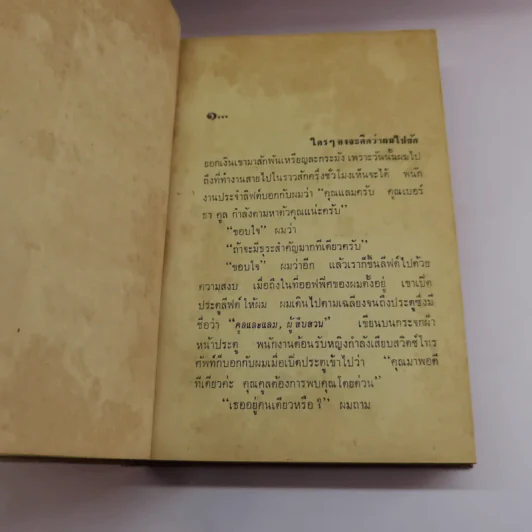 ๑...
ใครๆ คงจะคิดว่าผมไปชัก
ยอกเงินเขามาสักพันเหรียญละกระมัง เพราะวันนั้นผมไป
ถึงที่ทำงานสายไปในราวสักครึ่งชั่วโมงเห็นจะได้ พนัก
งานประจำลิฟต์บอกกับผมว่า “คุณแลมครับ คุณเบอร์
ธา คูล กำลังตามหาตัวคุณแน่ะครับ”
“ขอบใจ” ผมว่า
“ถ้าจะมีธุระสำคัญมากทีเดียวครับ”
“ขอบใจ” ผมว่าอีก แล้วเราก็ขึ้นลิฟต์ไปด้วย
ความสงบ เมื่อถึงในที่ออฟฟิศของผมตั้งอยู่ เขาเปิด
ประตูลิฟต์ให้ผม ผมเดินไปตามเฉลียงจนถึงประตูซึ่งมี
ชื่อว่า “คูลและแลม, ผู้สืบสวน” เขียนบนกระจกฝ้า
หน้าประตู พนักงานต้อนรับหญิงกำลังเสียบสวิตช์โทร
ศัพท์ก็บอกกับผมเมื่อเปิดประตูเข้าไปว่า “คุณมาพอดี
ทีเดียวค่ะ คุณคูลต้องการพบคุณโดยด่วน”
“เธออยู่คนเดียวหรือ ?” ผมถาม